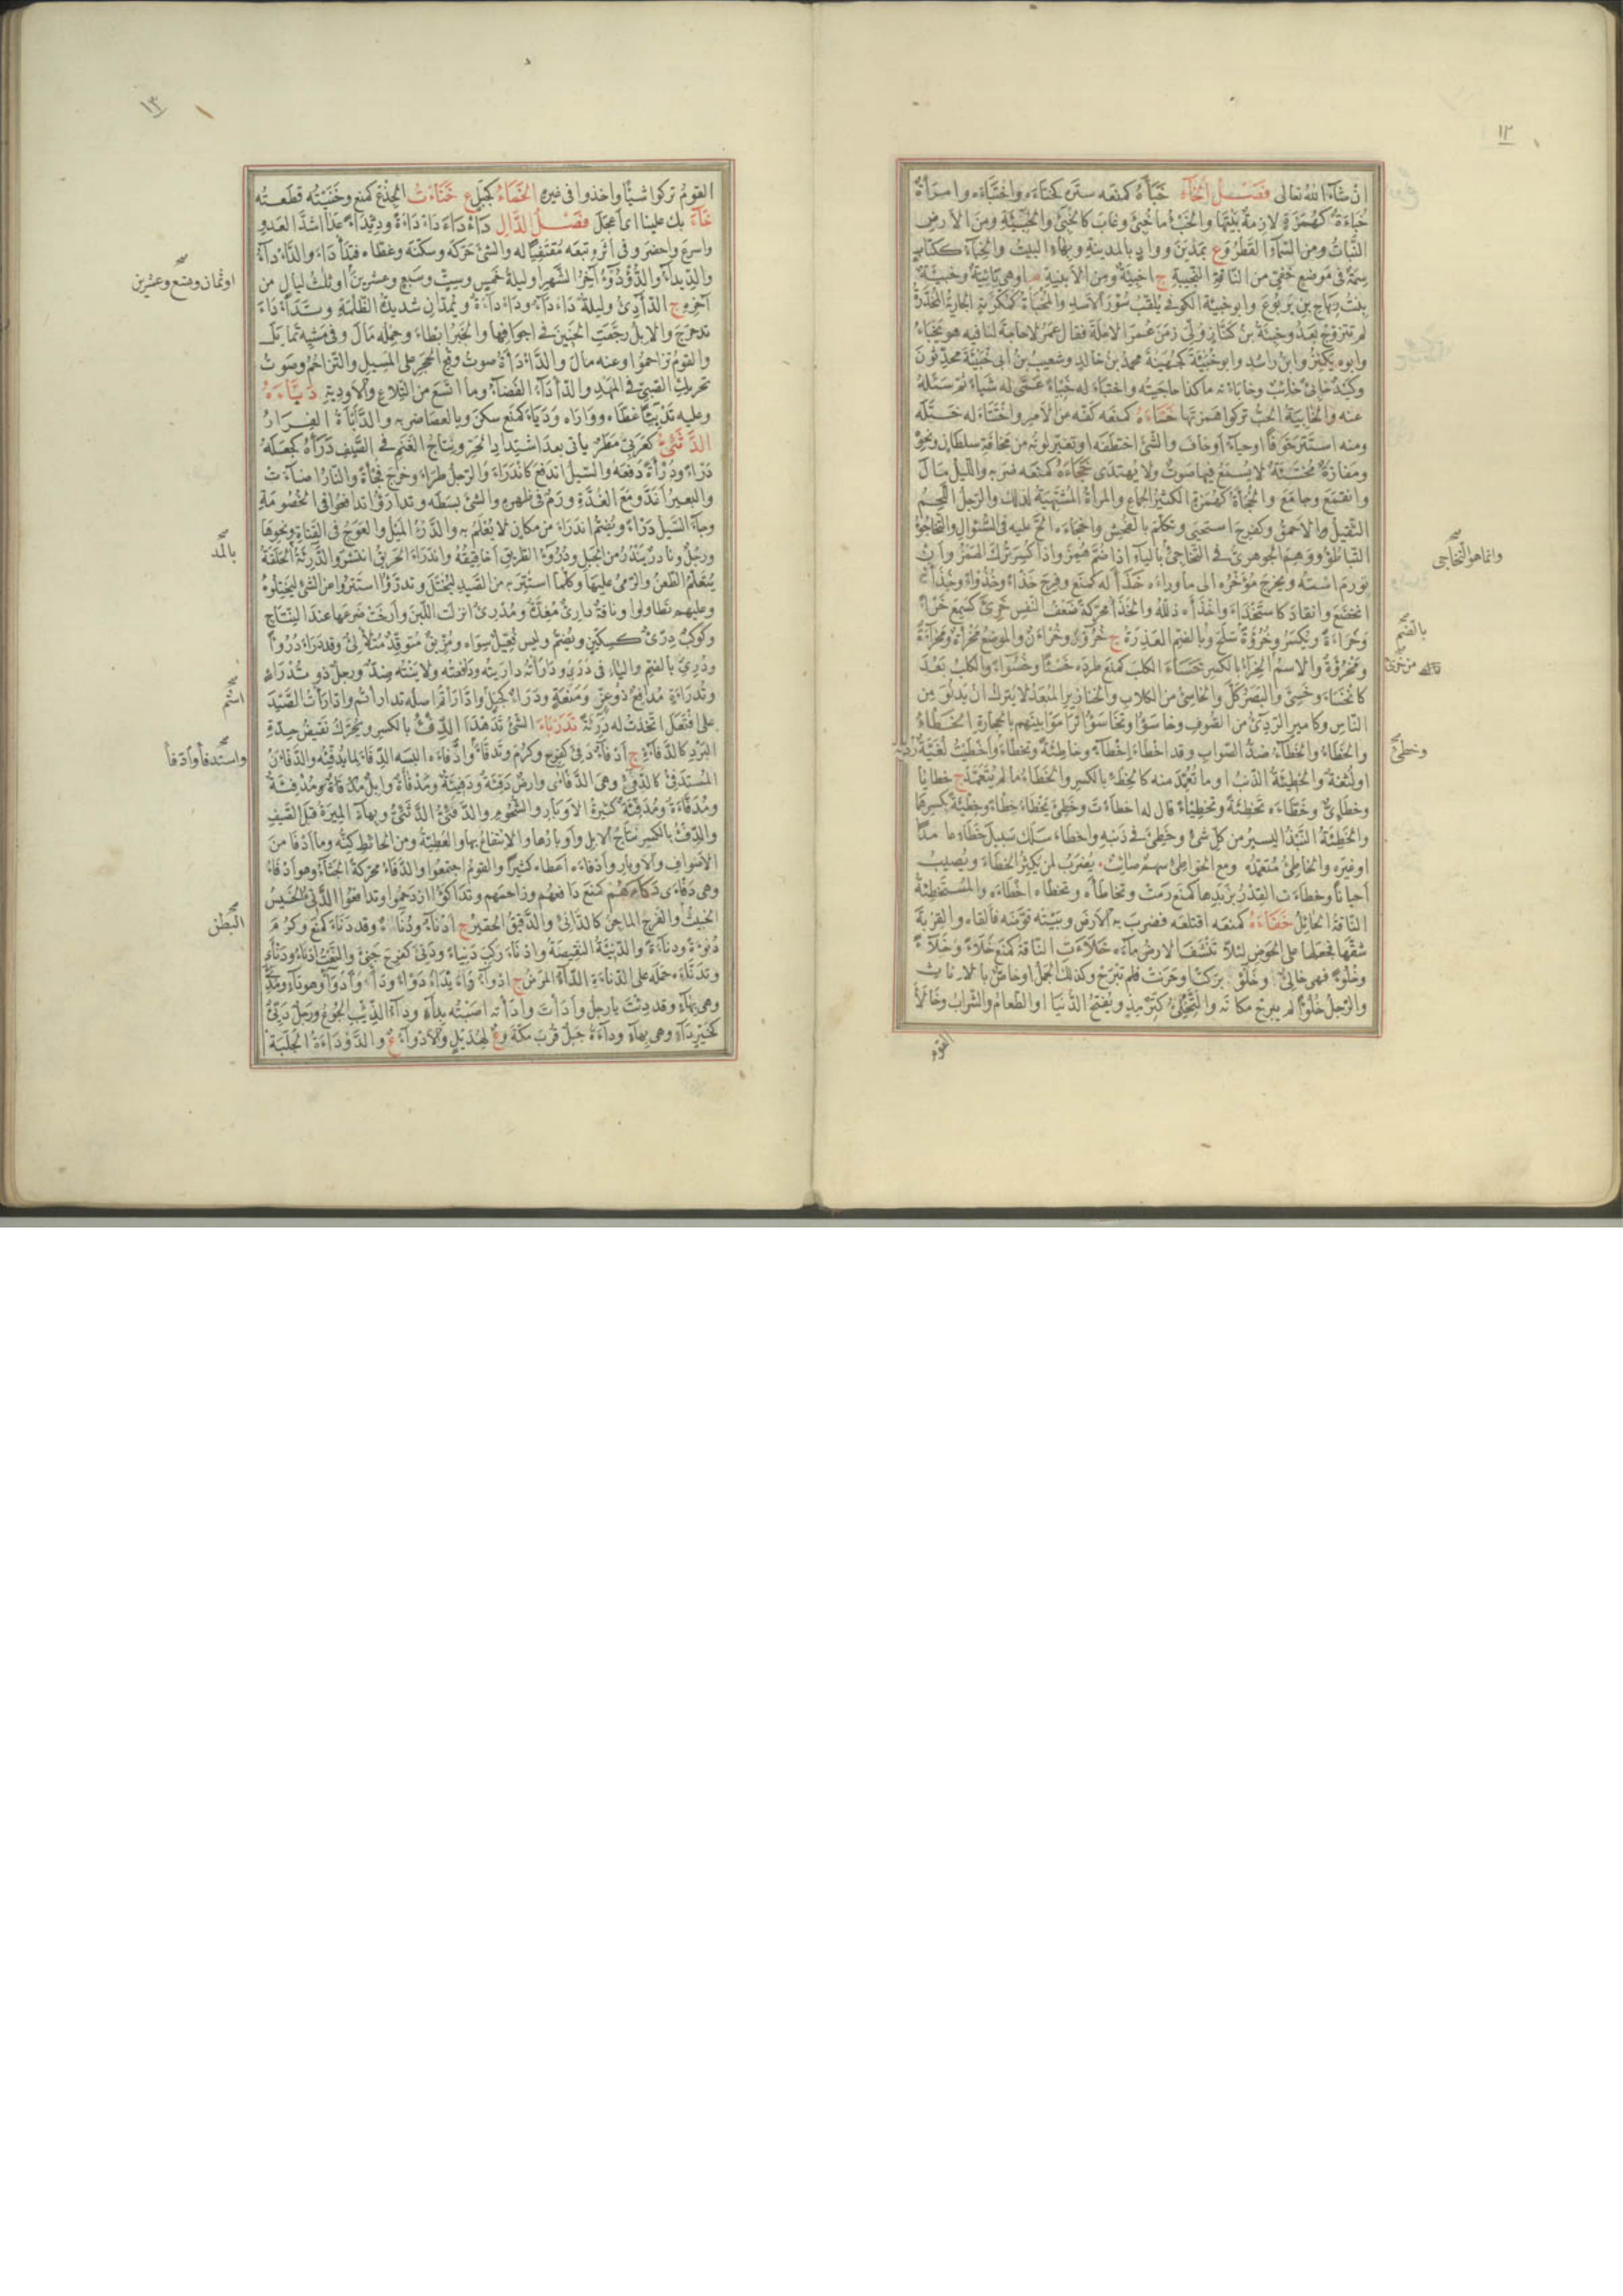 ١٢
ان شاء الله تعالى فصل الخاء خبأه كمنعه ستره كخبأه واختبأه وامرأة
خبأة كهمزة لازمة بيتها والخبء ما خبئ وغاب كالخبئ والخبيئة ومن الارض
النبات ومن السماء القطر وع بمدين وواد بالمدينة وبهاء البنت والخباء ككتاب
سمة في موضع خفي من الناقة النجيبة ج اخبئة ومن الأبنية م او هي يائية وخبيئة
بنت رياح بن يربوع وابو خبيئة الكوفي يلقب سؤر الاسد والمخبأة كمكرمة الجارية المخدرة
لم تتزوج بعد وخبئة بن كناز ولي زمن عمر الابلة فقال عمر لا حاجة لنا فيه هو يخبأ
وابوه يكنز وابن راشد وابو خبيئة كجهينة محمد بن خالد وشعيب بن ابى خبيئة محدثون
وكيد خابئ خائب وخابأته ما كذا حاجيته واختبأ له خبيئا عمى له شيأ ثم سئله
عنه والخابية الحب تركوا همزتها ختأه كمنعه كفه عن الامر واختتأ له ختله
ومنه استتر خوفا او حياء او خاف والشئ اختطفه او تغير لونه من مخافة سلطان ونحوه
ومفازة مختتئة لا يسمع فيها صوت ولا يهتدى خجأه كمنعه ضربه والليل مال
وانقمع وجامع والخجأة كهمزة الكثير الجماع والمرأة المشتهية لذلك والرجل اللحم
الثقيل والاحمق وكفرح استحيى وتكلم بالفحش واخجأه الح عليه في السؤال والتخاجؤ
التباطؤ ووهم الجوهرى في التخاجئ بالياء اذا ضم همز واذا كسر ترك الهمز وان
تورم استه ويخرج مؤخره الى ما وراءه خذأ له كمنع وفرح خذأ وخذوأ وخذأ
انخضع وانقاد كاستخذأ واخذأه ذلله والخذأ محركة ضعف النفس خرئ كسمع خرأ
وخراءة ويكسر وخروءة سلح وبالضم العذرة ج خروء وخرآن والموضع مخرأة ومخرأة
ومخرؤة والاسم الخراء بالكسر خسأ الكلب كمنع طرده خسأ وخسوأ والكلب بعد
كانخسأ وخسئ والبصر كل والخاسئ من الكلاب والخنازير المبعد لا يترك ان يدنو من
الناس وكامير الردئ من الصوف وخاسؤا وتخاسؤا تراموا بينهم بالحجارة الخطء
والخطأ والخطاء ضد الصواب وقد اخطأ اخطاء وخاطئة وتخطأ واخطيت لغية رديئة
او لثغة والخطيئة الذنب او ما تعمد منه كالخطء بالكسر والخطأ ما لم يتعمد ج خطايا
وخطائئ وخطأه تخطئة وتخطيئا قال له اخطأت وخطئ يخطأ خطأ وخطئة بكسرهما
والخطيئة النبذ اليسير من كل شئ وخطئ في ذنبه واخطأ سلك سبيل خطأ عامدا
او غيره والخاطئ متعمده ومع الخواطئ سهم صائب يضرب لمن يكثر الخطأ ويصيب
احيانا وخطأت القدر بزبدها كمنع رمت وتخاطأه وتخطأه اخطأه والمستخطئة
الناقة الحائل خفأه كمنعه اقتلعه فضرب به الارض وبيته قوضه فالقاه والقربة
شقها فجعلها على الحوض لئلا تنشف الارض ماءه خلأت الناقة كمنع خلأ وخلاء
وخلوأ فهى خالئ وخلوء بركت او حرنت فلم تبرح وكذلك الجمل او خاص بالاناث
والرجل خلوأ لم يبرح مكانه والتخلئ كترمذ ويفتح الدنيا او الطعام والشراب وخالأ
القوم
وانما هو التخاجى
بالضم
وخطئ
١٣
القوم تركوا شيأ واخذوا في غيره الخمأ كجبل ع خنأت الجذع كمنع وخنيته قطعته
خاء بك علينا اى اعجل فصل الدال دأدأ دأدأة ودئداء عدا اشد العدو
واسرع واحضر وفي اثره تبعه مقتفيا له والشئ حركه وسكنه وغطاه فتدأدأ والدأداء
والدئداء والدؤدؤ آخر الشهر او ليلة خمس وست وسبع وعشرين او ثلث ليال من
آخره ج الدآدئ وليلة دأداء ودأدأة ويمدان شديدة الظلمة وتدأدأ
تدحرج والابل رجعت الحنين في اجوافها والخبر ابطأ وحمله مال وفي مشيه تمايل
والقوم تزاحموا وعنه مال والدأدأة صوت وقع الحجر على المسيل والتزاحم وصوت
تحريك الصبي في المهد والدأداء الفضاء وما اتسع من التلاع والاودية دبأه
وعليه تدبيئا غطاه وواراه ودبأ كمنع سكن وبالعصا ضربه والدبأة الفرار
الدثئى كعربى مطر يأتى بعد اشتداد الحر ونتاج الغنم في الصيف درأه كجعله
درأ ودرأة دفعه والسيل اندفع كاندرأ والرجل طرأ وخرج فجأة والنار اضاءت
والبعير اغد ومع الغدة ورم في ظهره والشئ بسطه وتدارؤا تدافعوا في الخصومة
وجاء السيل درأ ويضم اندرأ من مكان لا يعلم به والدرء الميل والعوج في القناة ونحوها
ورجل ونادر يندر من الجبل ودروء الطريق اخاقيقه واندرأ الحريق انتشر والدريئة الحلقة
يتعلم الطعن والرمى عليها وكلما استتر به من الصيد ليختل وتدرؤا استتروا من الشئ ليختلوه
وعليهم تطاولوا وناقة دارئ مغدة ومدرئ انزلت اللبن وارخت ضرعها عند النتاج
وكوكب درئ كسكين ويضم وليس فعيل سواه ومريق متوقد متلألئ وقد درأ دروأ
ودرئ بالضم والياء في درر ودارأته داريته ودافعته ولاينته ضد ورجل ذو تدرأ
وتدرأة مدافع ذو عز ومنعة ودرأ كجبل وادارأتم اصله تدارأتم وادارأت الصيد
على افتعل اتخذت له دريئة تدربأ الشئ تدهدأ الدفء بالكسر ويحرك نقيض حدة
البرد كالدفاءة ج ادفاء دفئ كفرح وكرم وتدفأ وادفأه البسه الدفاء لما يدفئه والدفآن
المستدفئ كالدفئ وهي الدفأى وارض دفئة ودفيئة ومدفأة وابل مدفأة ومدفئة
ومدفأة ومدفئة كثيرة الاوبار والشحوم والدفئى الدثئى وبهاء الميرة قبل الصيف
والدفء بالكسر نتاج الابل واوبارها والانتفاع بها والعطية ومن الحائط كنه وما ادفأ من
الاصواف والاوبار وادفأه اعطاه كثيرا والقوم اجتمعوا والدفأ محركة الجنأ وهو ادفأ
وهى دفأى دكأهم كمنع دافعهم وزاحمهم وتداكؤا ازدحموا وتدافعوا الدنئ الخسيس
الخبيث والفرج الماجن كالدانئ والدقيق الحقير ج ادناء ودناء وقد دنأ كمنع وكرم
دنوءة ودناءة والدنيئة النقيصة وادنأ ركب دنيئا ودنئ كفرح جنئ والنعت ادنأ ودنأى
وتدنأه حمله على الدناءة الداء المرض ج ادواء داء يداء دوأ وداء وادوأ وهو داء ومدئ
وهى بهاء وقد دئت يا رجل وادأت وادأته اصبته بداء وداء الذئب الجوع ورجل دئ
كخير داء وهى بهاء وداءة جبل قرب مكة وع لهذيل والادواء ع والدوداءة الجلبة
او ثمان وتسع وعشرين
بالمد
اسم
واستدفأ وادفأ
البطن